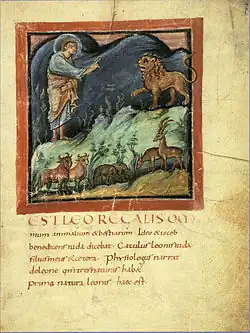 EST LEO REGALIS OM
nium animalium & bestiarum Ideo & iacob
benedicens iuda dicebat Catulus leonis iuda
filius meus & cetera Physiologus narrat
de leone qui tres naturas habet
prima natura leonis haec est